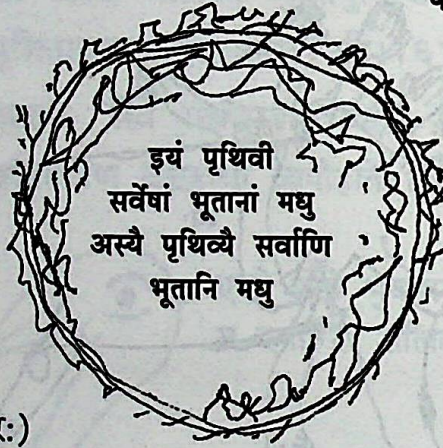 इयं पृथिवी
सर्वेषां भूतानां मधु
अस्यै पृथिव्यै सर्वाणि
भूतानि मधु